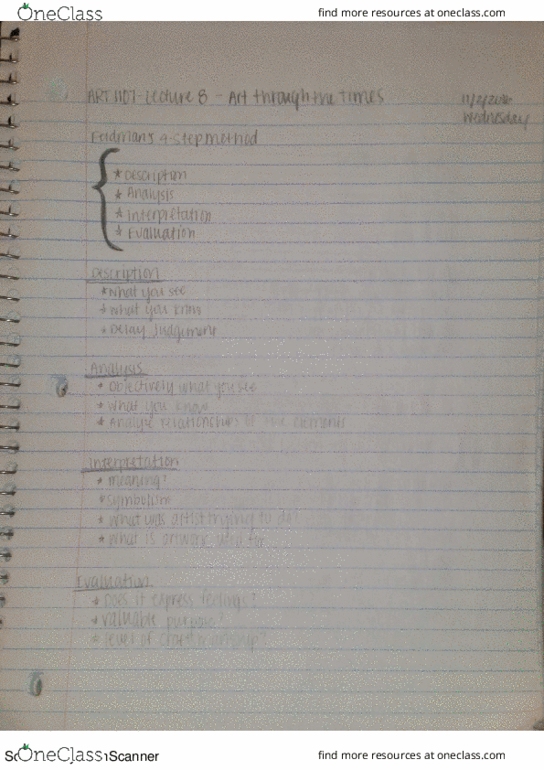 OneClass find more resources at oneclass.com
ART 1107-Lecture 8 - Art through the Times 11/2/2016
Wednesday
Feldman's 4-step method
* Description
* Analysis
* Interpretation
* Evaluation
Description
* What you see
* What you know
* Delay Judgement
Analysis
* Objectively what you see
* What you know
* Analyze relationships of the elements
Interpretation
* meaning?
* symbolism
* What was artist trying to do?
* What is artwork used for
Evaluation
* Does it express feelings?
* Valuable purpose?
* level of craftsmanship?
OneClass Scanner find more resources at oneclass.com